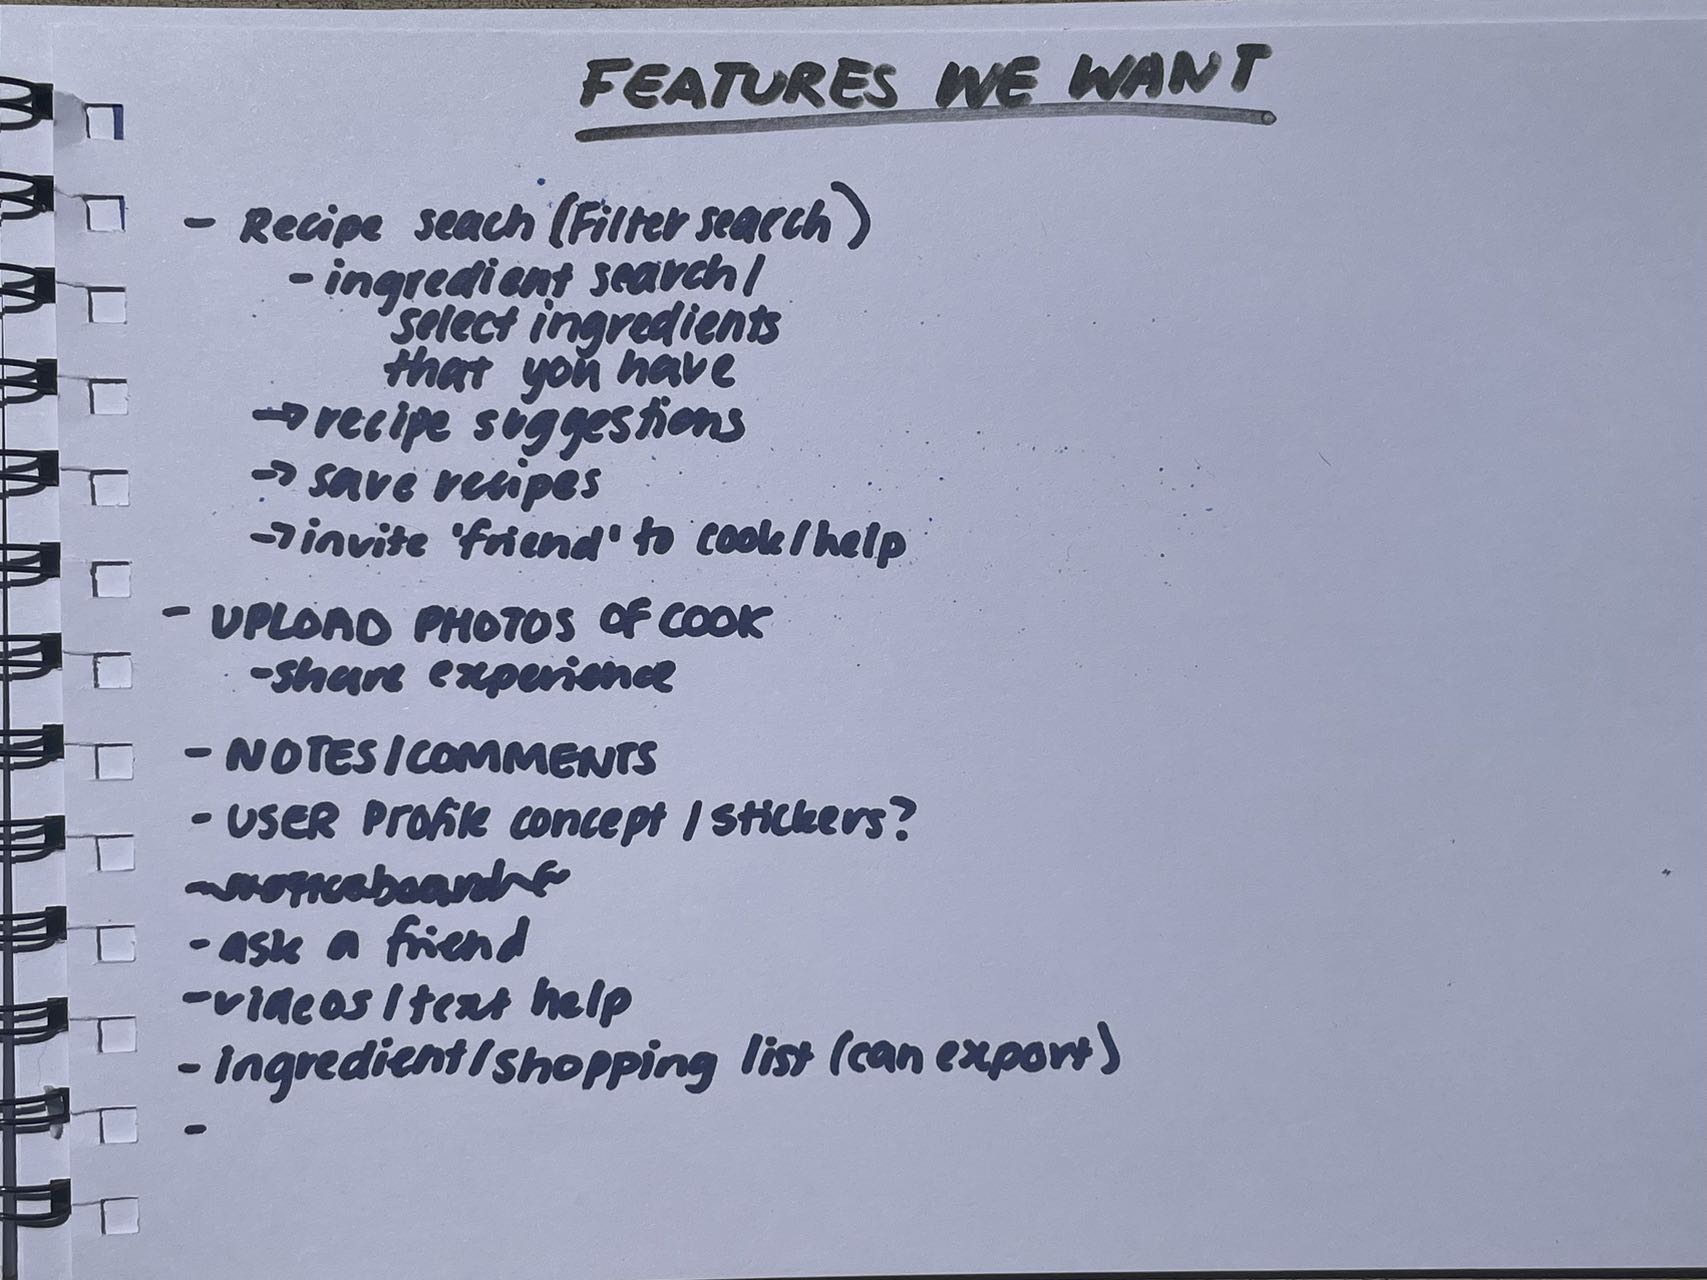 FEATURES WE WANT
- Recipe seach (Filter search)
- ingredient search/
select ingredients
that you have
→ recipe suggestions
→ save recipes
→ invite 'friend' to cook/help
- UPLOAD PHOTOS OF COOK
- share experience
- NOTES/COMMENTS
- USER Profile concept / stickers?
- noticeboard
- ask a friend
- videos/text help
- ingredient/shopping list (can export)
-